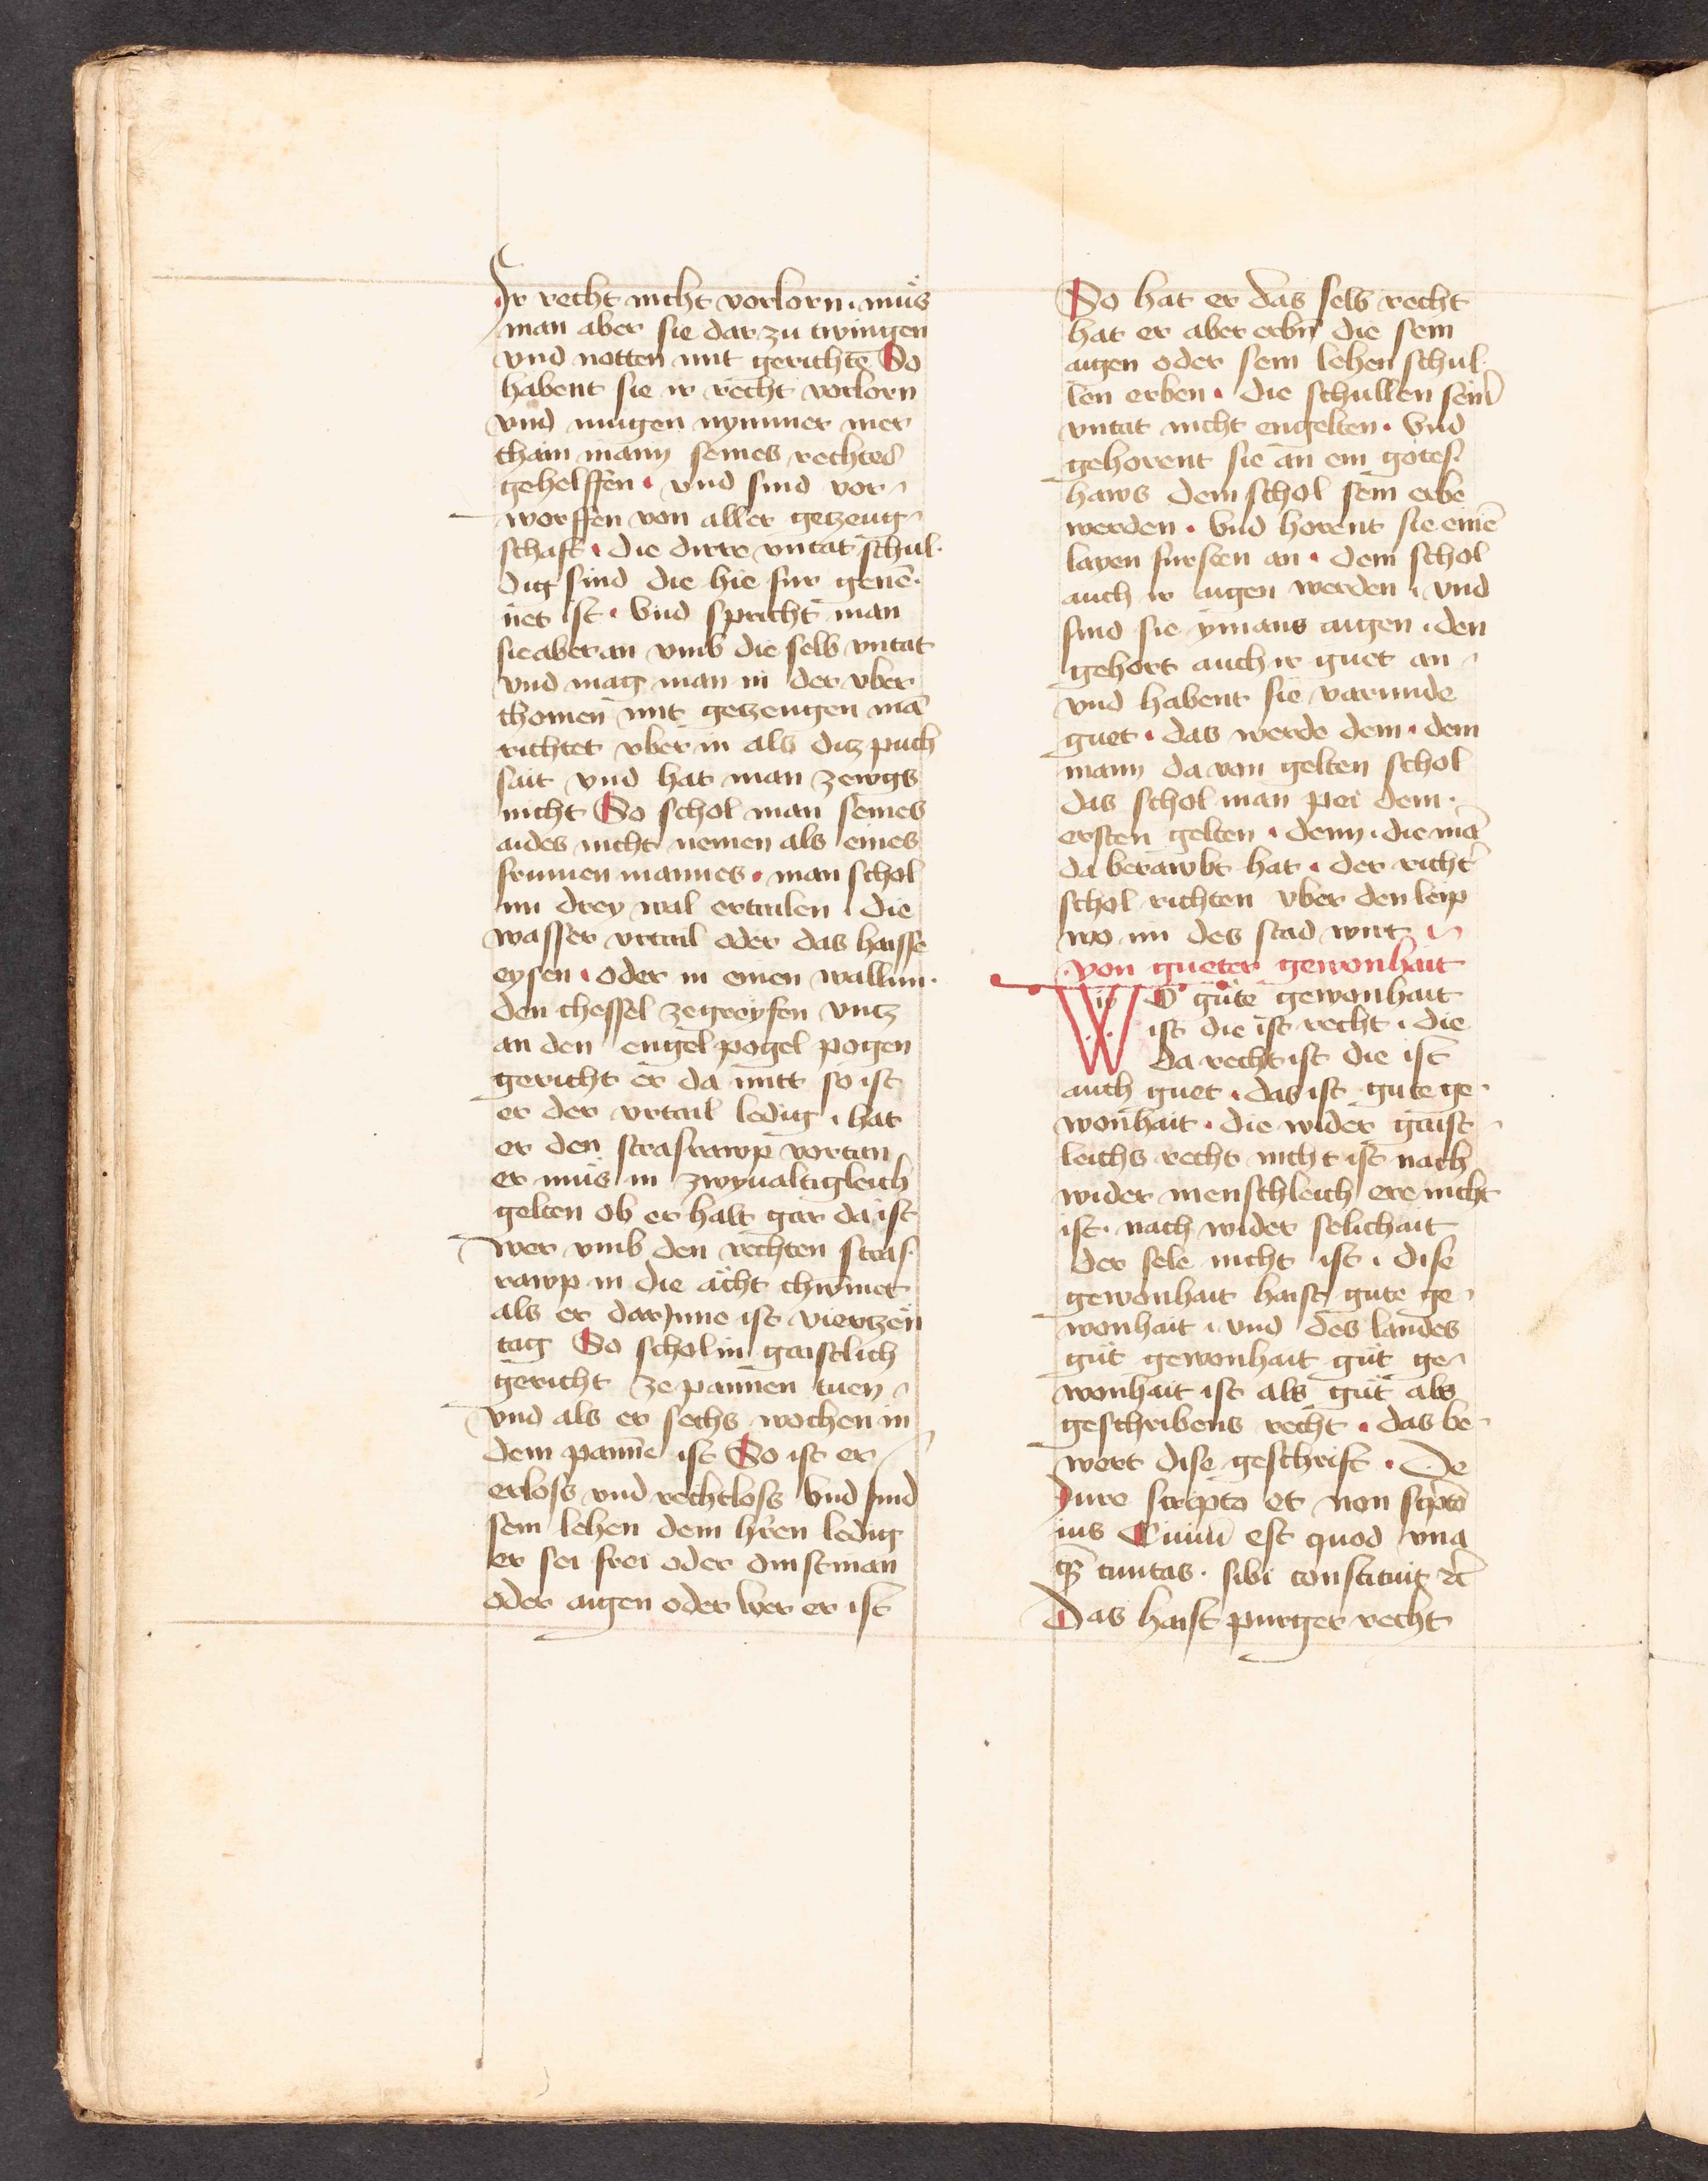 Ir recht nicht vorlorn · muͦs
man aber sie dar zu twingen
vnd notten mit gerichtē So
habent sie ir recht vorlorn
vnd mugen nymmer mer
chain mann seines rechtes
gehelffen · vnd sind vor¬
worffen von aller getzeug¬
schaft · die dirre vntat schul¬
dig sind die hie fur genē¬
net ist · Vnd spricht man
sie aber an vmb die selb vntat
vnd mag man in der vber
chomen mit getzeugen mā
richtet vber in als ditz puch
sait vnd hat man zewgs
nicht So schol man seines
aides nicht nemen als eines
frumen mannes · man schol
im drey wal ertailen · die
wasser vrtail oder das haisse
eysen · oder in einen wallun¬
den chessel ze greyfen vntz
an den engelpogel pogen
gericht er da mitt so ist
er der vrtail ledig · hat
er den strasrawp vortan
er muͦs in zwyualtigleich
gelten ob er halt gar da ist
wer vmb den rechten stras¬
rawp in die ächt chumet
als er dar Inne ist viertzen
tag So schol in gaistlich
gericht ze pannen tuen
vnd als er sechs wochen in
dem panne ist So ist er
erloss vnd rechtloss Vnd sind
sein lehen dem h'ren ledig
er sei frei oder dinstman
oder aigen oder wer er ist
So hat er das selb recht
hat er aber erbn̄ die sein
aigen oder sein lehen schul¬
len erben · die schullen sein̄
vntat nicht engelten · Vnd
gehorent sie an ein gotes¬
haws dem schol sein erbe
werden · Vnd horent sie einē
layen fursten an · dem schol
auch ir aigen werden · vnd
sind sie ymans aigen · den
gehort auch ir guet an
vnd habent sie varunde
guet · das werde dem · dem
mann da von gelten schol
das schol man pei dem ·
ersten gelten · denn · die mā
da berawbt hat · der richt'
schol richten vber den leip
wo im des stad wirt
von gueter gewonhait
Was guͦte gewonhait
ist die ist recht · die
da recht ist die ist
auch guet · das ist gute ge¬
wonhait · die wider gaist¬
leichs recht nicht ist nach
wider menschleich ere nicht
ist · nach wider selichait
der sele nicht ist · dise
gewonhait haist gute ge¬
wonhait · vnd des landes
guͦt gewonhait guͦt ge¬
wonhait ist als guͦt als
geschribens recht · das be¬
wert dise geschrift · De
Iure scripto et non scpto
ius Ciuiū est quod vna
q̄ʒ ciuitas · sibi constituit ꝛc̄
Das haist purger recht